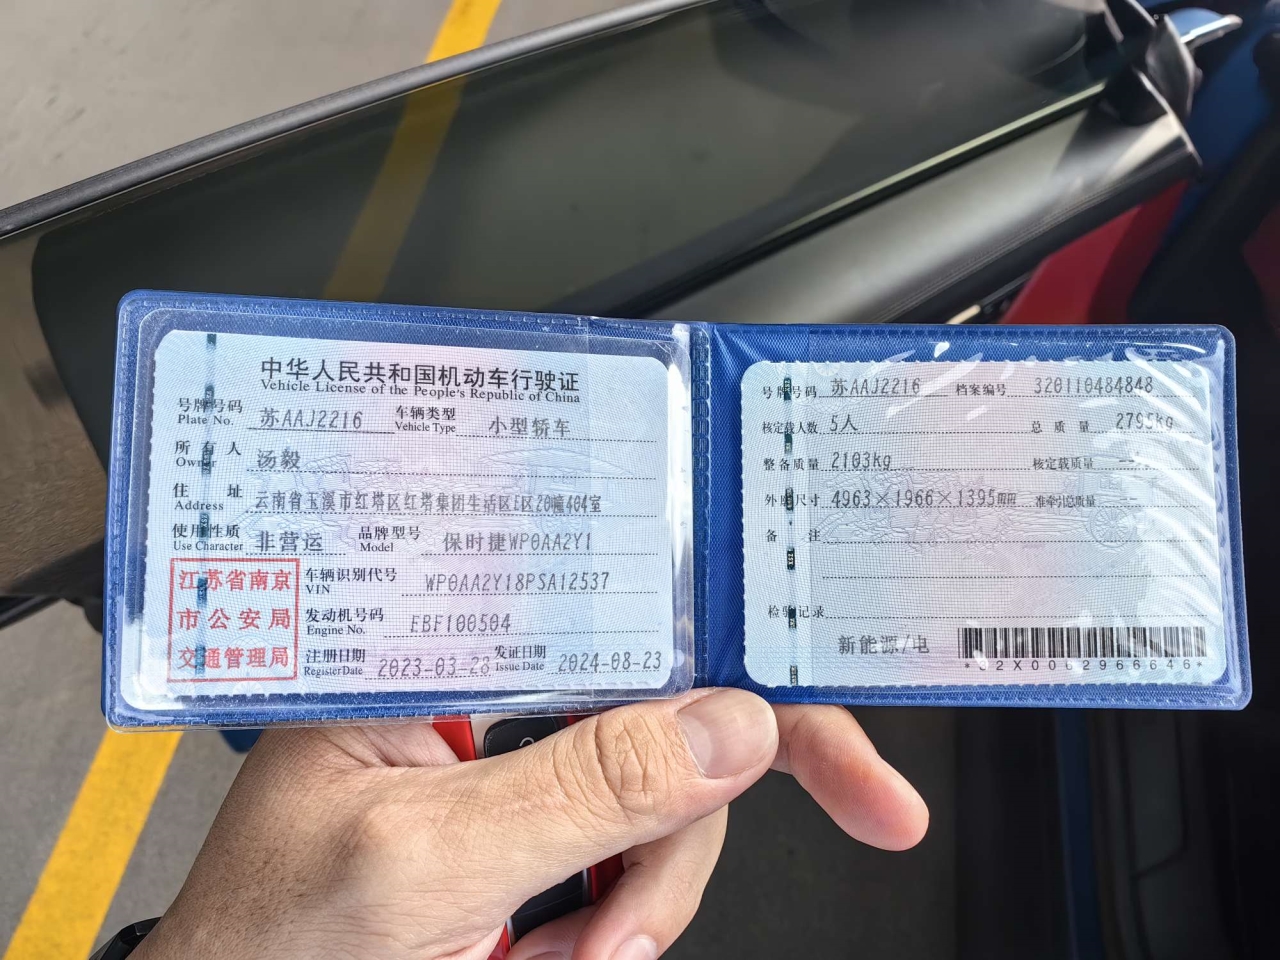 中华人民共和国机动车行驶证
Vehicle License of the People's Republic of China
号牌号码 苏AAJ2216 车辆类型 小型轿车
Plate No. Vehicle Type
所有人 汤毅
Owner
住址 云南省玉溪市红塔区红塔集团生活区E区20幢404室
Address
使用性质 非营运 品牌型号 保时捷WP0AA2Y1
Use Character Model
江苏省南京
市公安局
交通管理局
车辆识别代号 WP0AA2Y18PSA12537
VIN
发动机号码 EBF100504
Engine No.
注册日期 2023-03-28 发证日期 2024-08-23
Register Date Issue Date
号牌号码 苏AAJ2216 档案编号 320110484848
核定载人数 5人 总质量 2795kg
整备质量 2103kg 核定载质量 --
外廓尺寸 4963×1966×1395mm 准牵引总质量 --
备注
检验记录
新能源/电